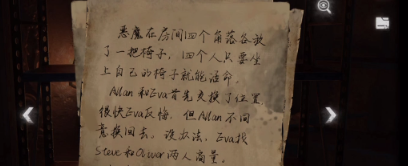 恶魔在房间四个角落各放
了一把椅子，四个人只要坐
上自己的椅子就能活命。
Allan和Eva首先交换了位置，
很快Eva反悔，但Allan不同
意换回去。没办法，Eva找
Steve和Oscar两人商量，